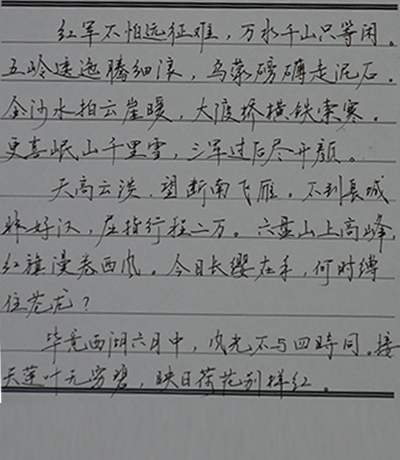 红军不怕远征难，万水千山只等闲。
五岭逶迤腾细浪，乌蒙磅礴走泥石。
金沙水拍云崖暖，大渡桥横铁索寒。
更喜岷山千里雪，三军过后尽开颜。
天高云淡，望断南飞雁。不到長城
非好汉，屈指行程二万。六盘山上高峰，
红旗漫卷西风。今日长缨在手，何时缚
住苍龙？
毕竟西湖六月中，风光不与四時同。接
天莲叶无穷碧，映日荷花别样红。